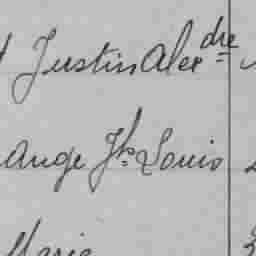 Justin Alexdre
ange Jh Louis
Marie